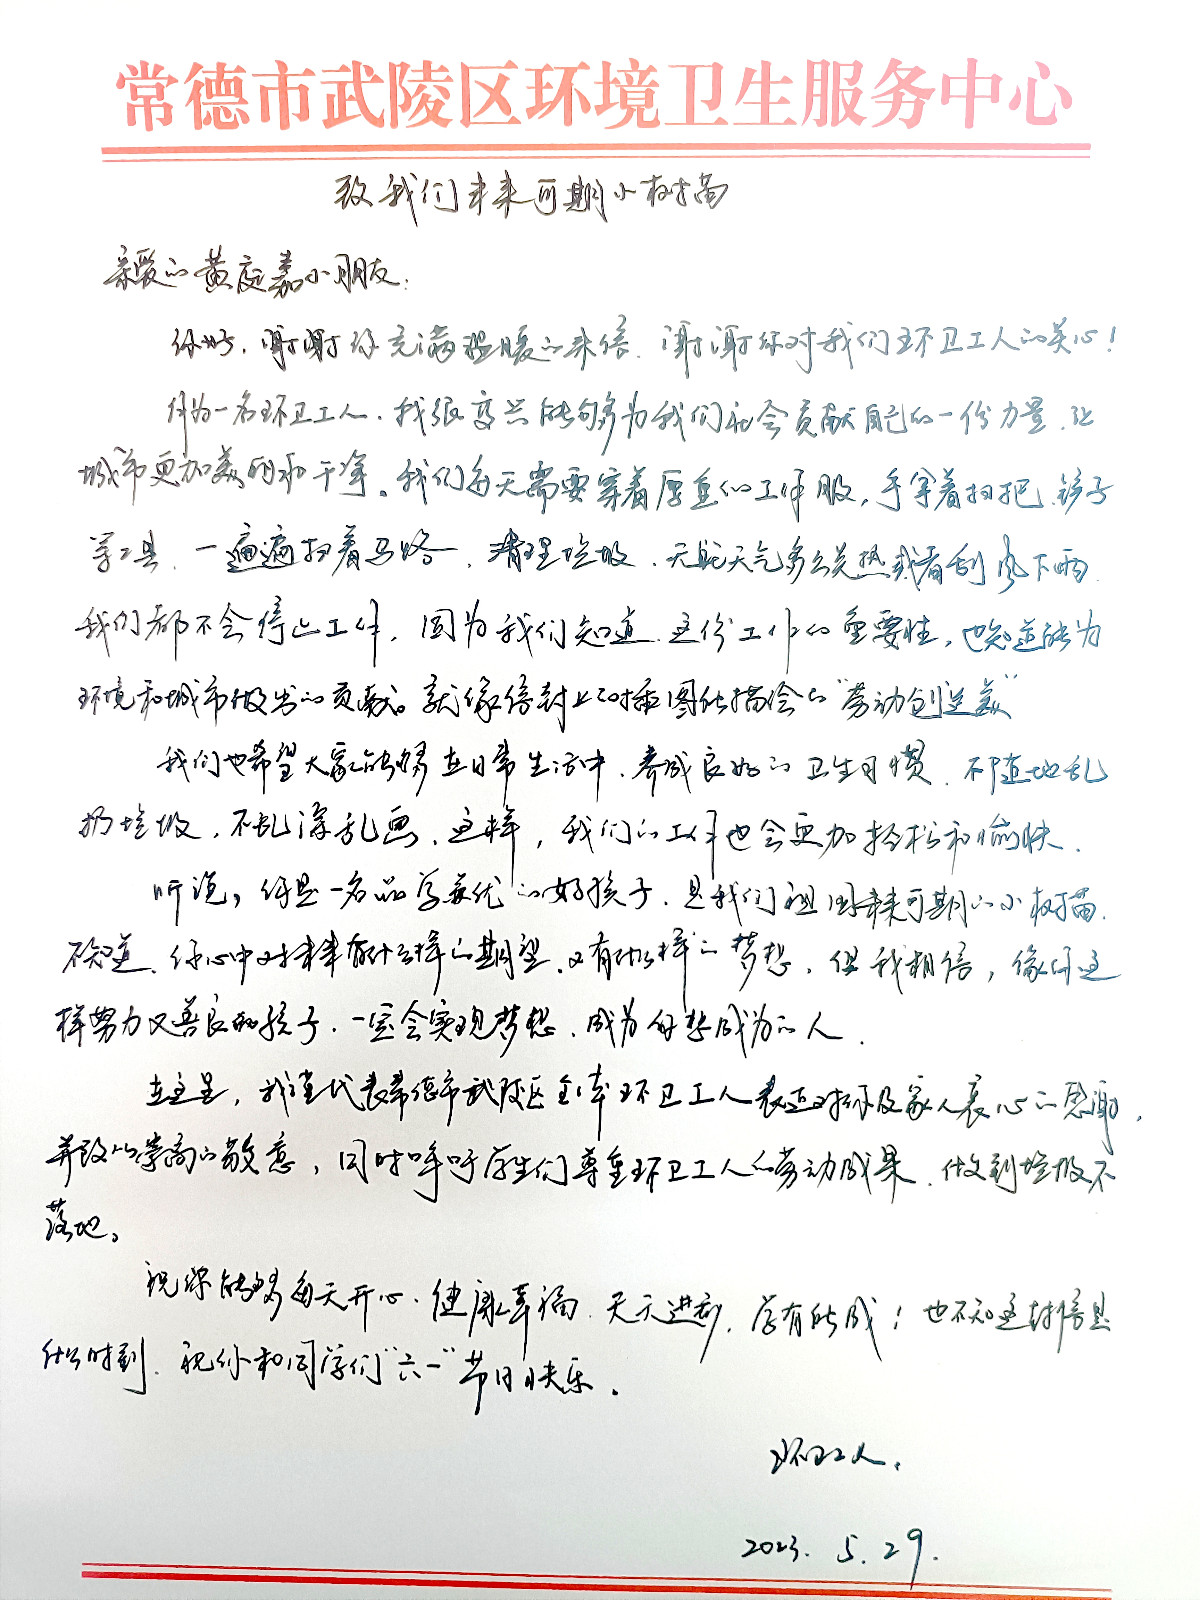 常德市武陵区环境卫生服务中心
致我们未来可期小树苗
亲爱的黄庭嘉小朋友:
你好,谢谢你充满温暖的来信,谢谢你对我们环卫工人的关心!
作为一名环卫工人,我很高兴能够为我们社会贡献自己的一份力量,让
城市更加美丽和干净。我们每天需要穿着厚重的工作服,手拿着扫把、铲子
等工具,一遍遍扫着马路,清理垃圾,无论天气多么炎热或者刮风下雨,
我们都不会停止工作,因为我们知道,这份工作的重要性,也知道能为
环境和城市做出的贡献。就像信封上的插图所描绘的“劳动创造美”
我们也希望大家能够在日常生活中,养成良好的卫生习惯,不随地乱
扔垃圾,不乱涂乱画,这样,我们的工作也会更加轻松和愉快.
听说,你是一名品学兼优的好孩子,是我们祖国未来可期的小树苗.
不知道,你心中对未来有什么样的期望,又有什么样的梦想,但我相信,像你这
样努力又善良的孩子,一定会实现梦想,成为你想成为的人.
在这里,我谨代表常德市武陵区全体环卫工人表达对你及家人衷心的感谢,
并致以崇高的敬意,同时呼吁学生们尊重环卫工人的劳动成果,做到垃圾不
落地。
祝你能够每天开心、健康幸福、天天进步,学有所成!也不知这封信是
什么时到,祝你和同学们“六一”节日快乐.
环卫工人.
2023.5.29.